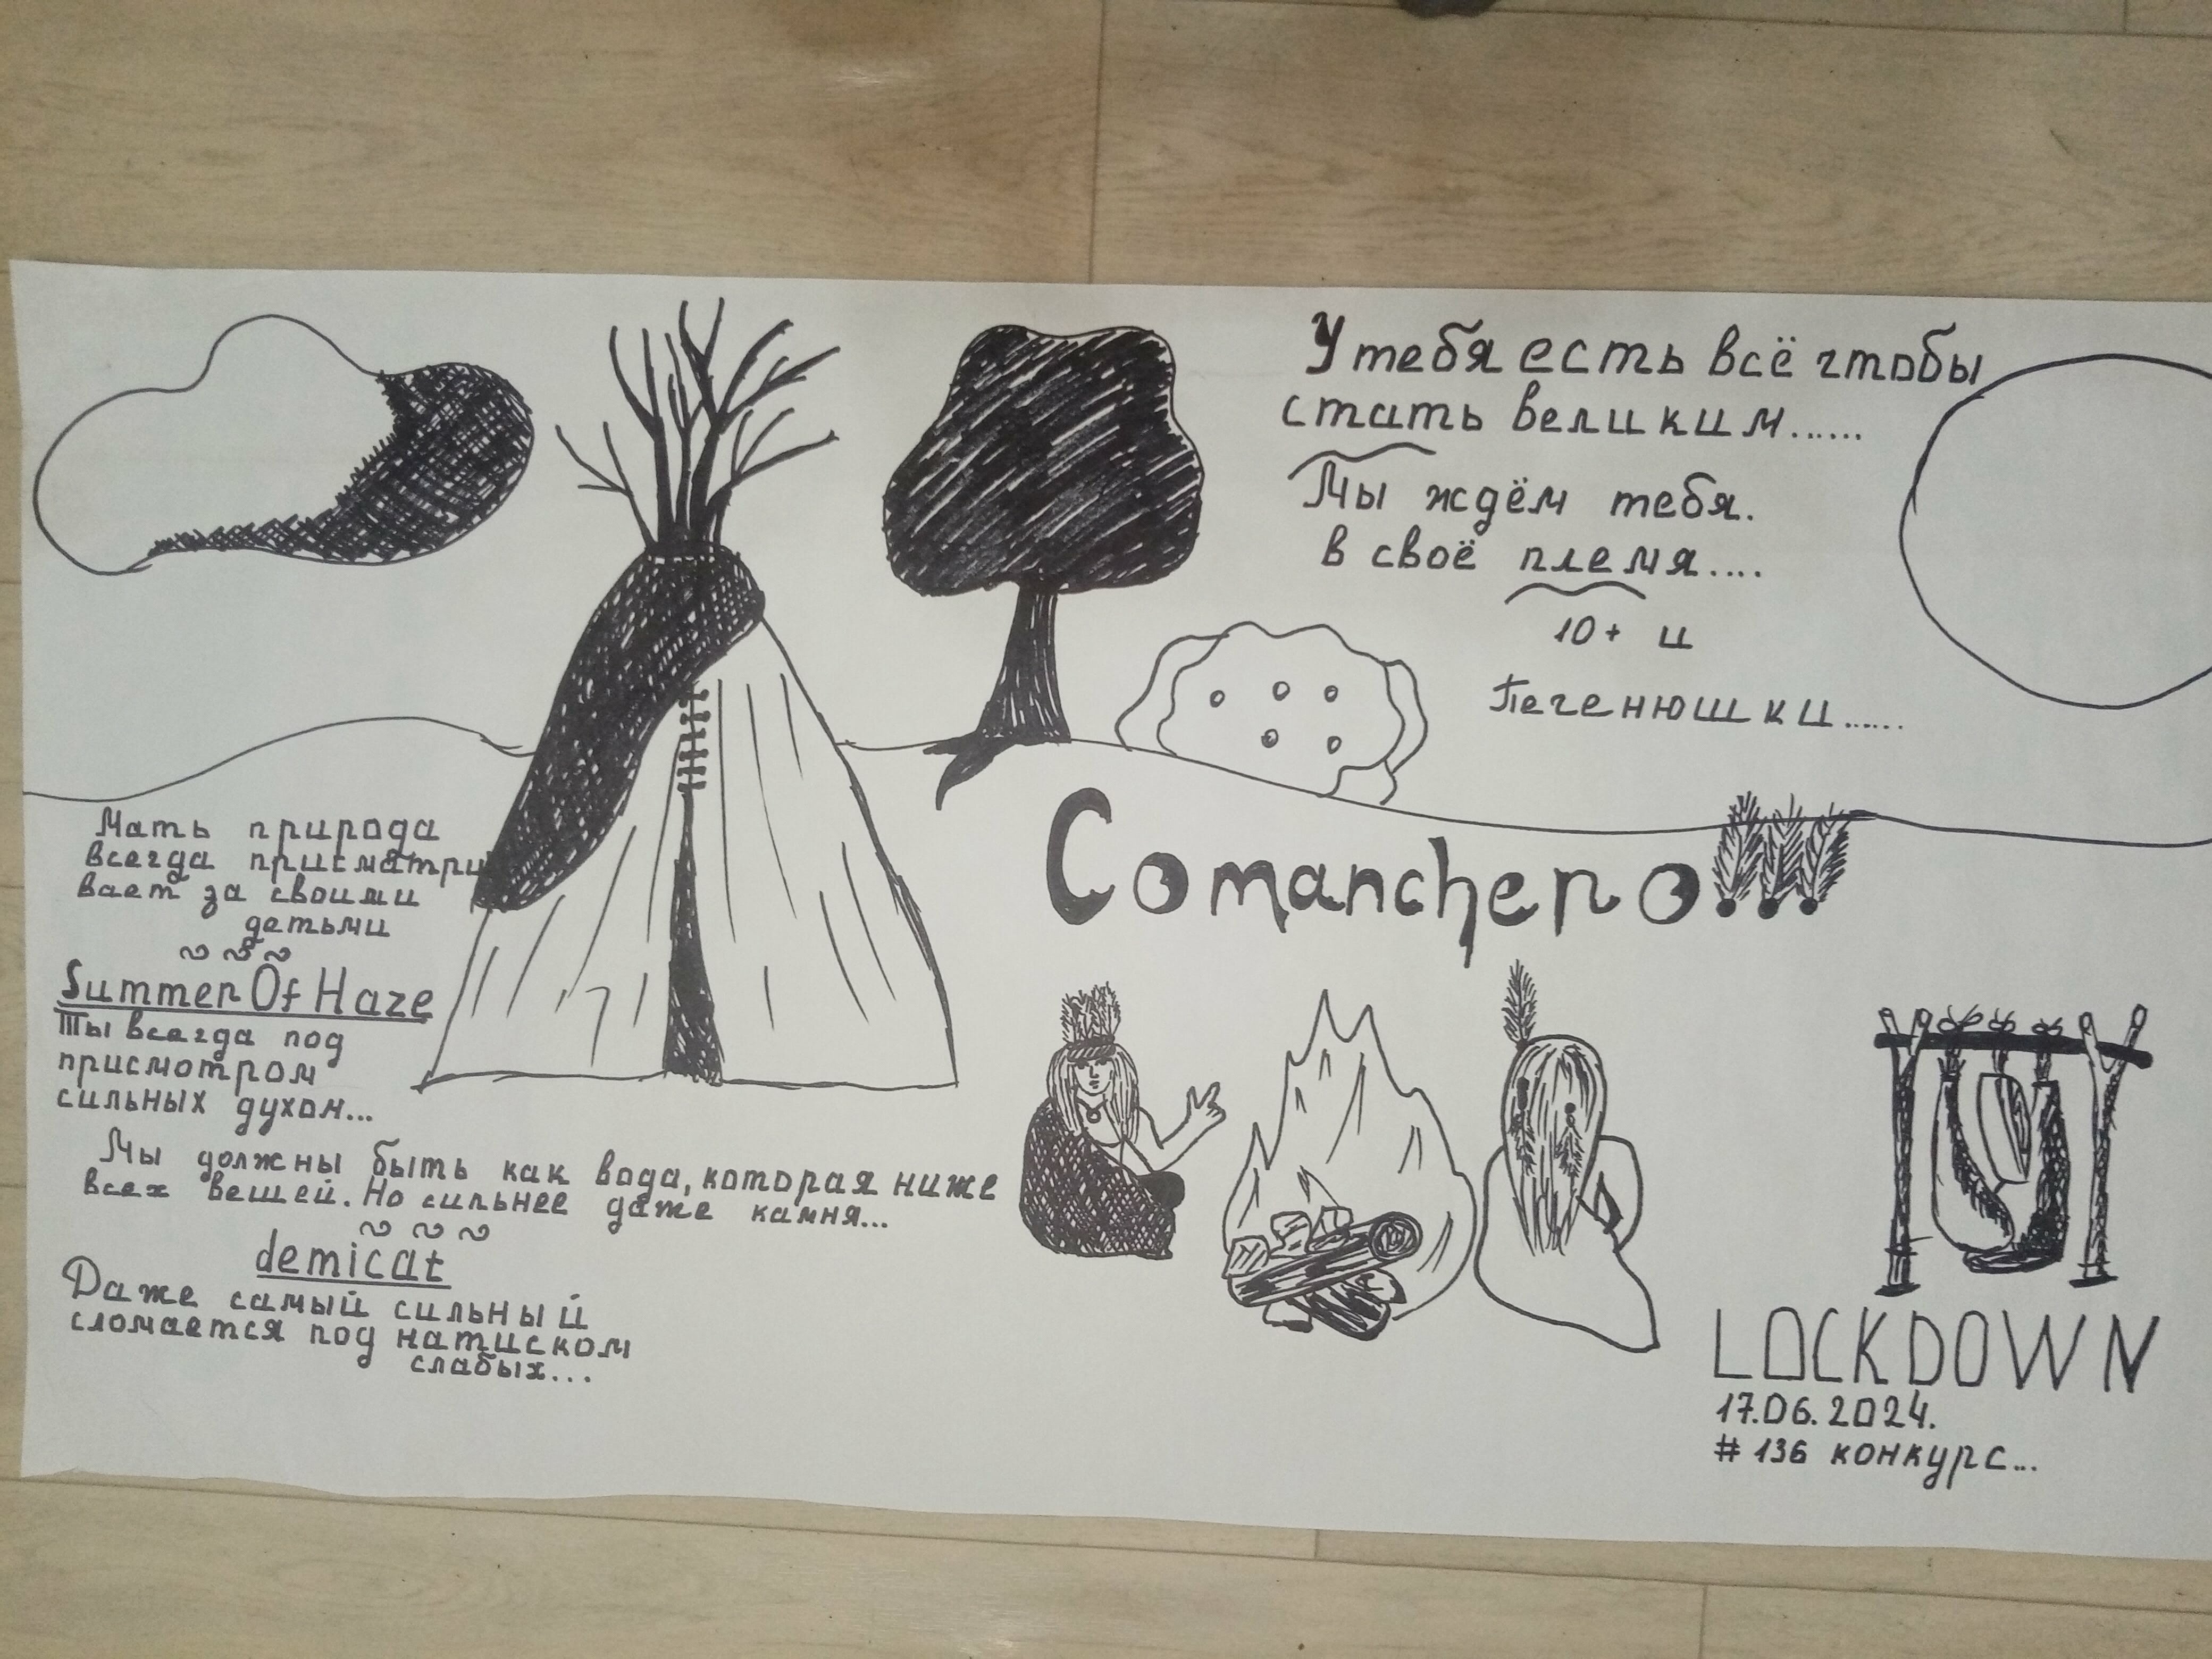 У тебя есть всё чтобы
стать великим......
Мы ждём тебя.
в своё племя....
10+ и
Печенюшки......
Comanchero
Мать природа
всегда присматри
вает за своими
детьми
Summer Of Haze
Ты всегда под
присмотром
сильных духом...
Мы должны быть как вода, которая ниже
всех вешей. Но сильнее даже камня...
demicat
Даже самый сильный
сломается под натиском
слабых...
LOCKDOWN
17.06.2024.
#136 конкурс...